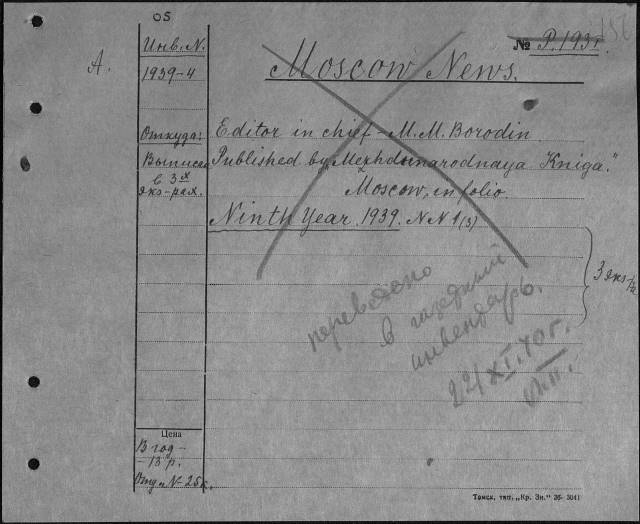 05
Инв. N.
№ P. 193
1939-4
A.
Moscow News.
Откуда:
Editor in chief - M. M. Borodin
Published by „Mezhdunarodnaya Kniga."
в 3х
экз-рах.
Moscow, in folio.
Ninth Year. 1939. N N 1(3)
переведено
в газетный
инвентарь.
22/XI.40г.
Цена
В год-
-13 р.
Отд. N- 25к.
Томск, тип. „Кр. Зн." 36- 3041